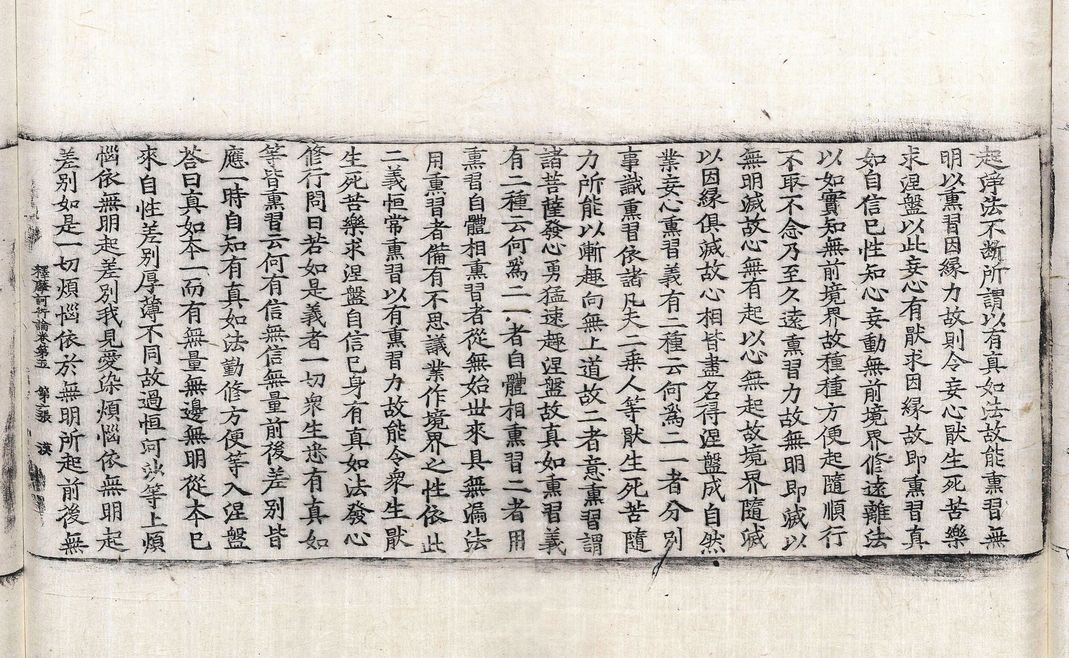 起淨法不断所謂以有真如法故能熏習無
明以熏習因縁力故則令妄心猒生死苦樂
求涅盤以此妄心有猒求因縁故即熏習真
如自信已性知心妄動無前境界修遠離法
以如實知無前境界故種種方便起隨順行
不取不念乃至久遠熏習力故無明即滅以
無明滅故心無有起以心無起故境界隨滅
以因縁俱滅故心相皆盡名得涅盤成自然
業妄心熏習義有二種云何爲二一者分別
事識熏習依諸凡夫二乗人等猒生死苦隨
力所能以漸趣向無上道故二者意熏習謂
諸菩薩發心勇猛速趣涅盤故真如熏習義
有二種云何爲二一者自體相熏習二者用
熏習自體相熏習者從無始世來具無漏法
用熏習者備有不思議業作境界之性依此
二義恒常熏習以有熏習力故能令衆生猒
生死苦樂求涅盤自信已身有真如法發心
修行問曰若如是義者一切衆生悉有真如
等皆熏習云何有信無信無量前後差別皆
應一時自知有真如法勤修方便等入涅盤
荅曰真如本一而有無量無邊無明從本已
來自性差別厚薄不同故過恒河沙等上煩
惱依無明起差別我見愛染煩惱依無明起
差別如是一切煩惱依於無明所起前後無
釋摩訶衍論卷第五 第二張 漢